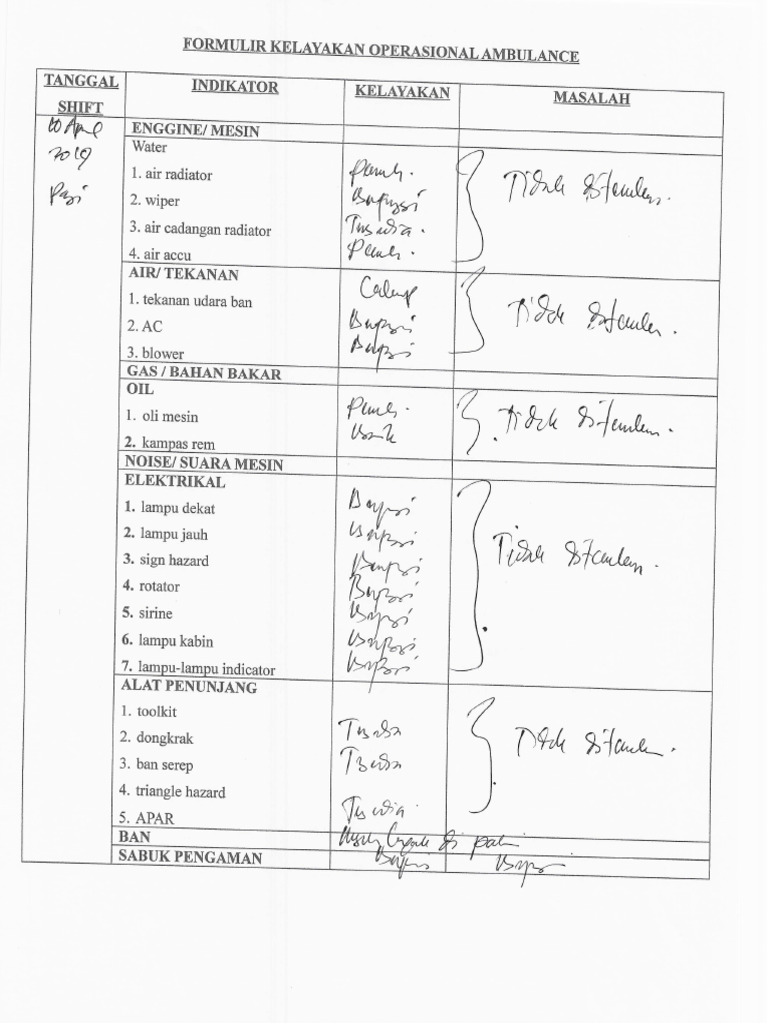 FORMULIR KELAYAKAN OPERASIONAL AMBULANCE
TANGGAL SHIFT INDIKATOR KELAYAKAN MASALAH
10 April 2019 Pagi
ENGGINE/ MESIN
Water
1. air radiator Penuh. Tidak ditemukan.
2. wiper Berfungsi
3. air cadangan radiator Tersedia.
4. air accu Penuh.
AIR/ TEKANAN
1. tekanan udara ban Cukup Tidak ditemukan.
2. AC Berfungsi
3. blower Berfungsi
GAS / BAHAN BAKAR
OIL
1. oli mesin Penuh. Tidak ditemukan.
2. kampas rem Baik
NOISE/ SUARA MESIN
ELEKTRIKAL
1. lampu dekat Berfungsi
2. lampu jauh Berfungsi Tidak ditemukan.
3. sign hazard Berfungsi
4. rotator Berfungsi
5. sirine Berfungsi
6. lampu kabin Berfungsi
7. lampu-lampu indicator Berfungsi
ALAT PENUNJANG
1. toolkit
2. dongkrak Tersedia Tidak ditemukan.
3. ban serep Tersedia
4. triangle hazard
5. APAR Tersedia
BAN Masih layak di pakai
SABUK PENGAMAN Berfungsi Berfungsi